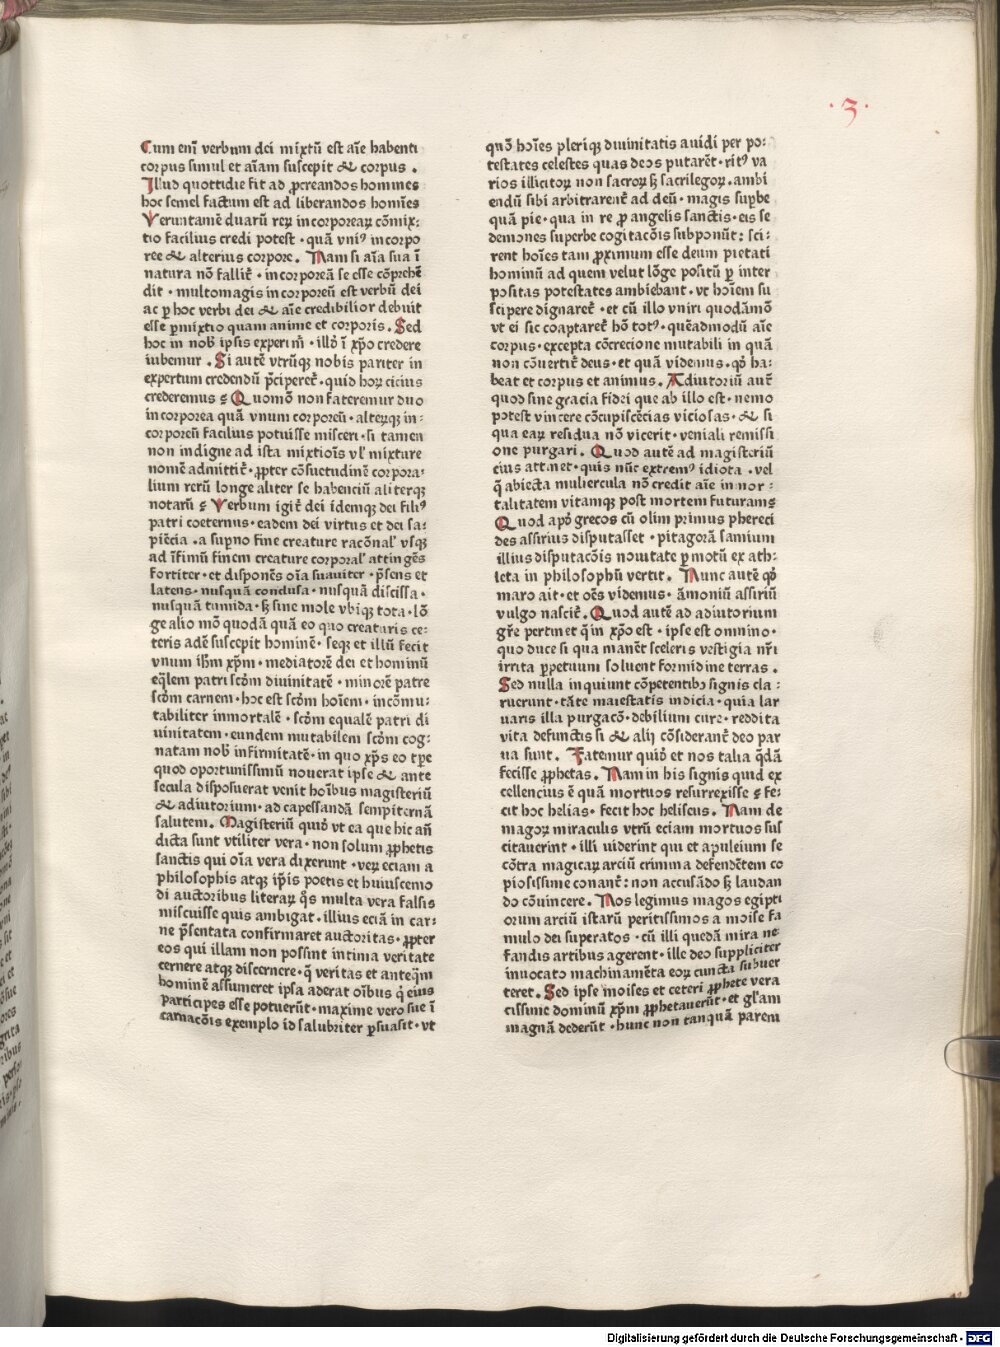 ·3·
Cum eni̅ verbum dei mixtu̅ est ai̅e habenti
corpus simul et ai̅am suscepit & corpus .
Illud quottidie fit ad ꝓcreandos homines
hoc semel factum est ad liberandos homi̅es
Verunta̅me̅ duaru̅ reꝝ incorporeaꝝ co̅mix:
tio facilius credi potest · qua̅ vniꝰ incorpo
ree & alterius corpore . Nam si ai̅a sua i̅
natura no̅ fallit᷑ · incorporea̅ se esse co̅prehe̅
dit · multomagis incorporeu̅ est verbu̅ dei
ac ꝑ hoc verbi dei & ai̅e credibilior debuit
esse ꝑmixtio quam anime et corporis . Sed
hoc in nob̅ ipsis experim̅ · illd̅ i̅ xp̅o credere
iubemur . Si aute̅ vtru̅qꝫ nobis pariter in
expertum credendu̅ p̅ciperet᷑ · quid hoꝝ cicius
crederemus ꝯ Quomo̅ non fateremur duo
incorporea qua̅ vnum corporeu̅ · alteꝝqꝫ in:
corporeu̅ facilius potuisse misceri · si tamen
non indigne ad ista mixtio̅is vl᷑ mixture
nome̅ admittit᷑ · ꝓpter co̅suetudine̅ corpora:
lium reru̅ longe aliter se habenciu̅ aliterqꝫ
notaru̅ ꝯ Verbum igit᷑ dei idemqꝫ dei filiꝰ
patri coeternus · eadem dei virtus et dei sa:
pie̅cia . a sup̱no fine creature raco̅nal᷑ vsqꝫ
ad i̅fimu̅ finem creature corporal᷑ attinge̅s
fortiter · et dispone̅s oi̅a suauiter · p̅sens et
latens · nusqua̅ conclusa · nusqua̅ discissa ·
nusqua̅ tumida · sꝫ sine mole vbiqꝫ tota · lo̅
ge alio mo̅ quoda̅ qua̅ eo quo creaturis ce:
teris ade̅ suscepit homine̅ · seqꝫ et illu̅ fecit
vnum ih̅m xp̅m · mediatore̅ dei et hominu̅
eq̅lem patri scd̅m diuinitate̅ · minore̅ patre
scd̅m carnem · hoc est scd̅m hoi̅em · inco̅mu:
tabiliter inmortale̅ · scd̅m equale̅ patri di
uinitatem · eundem mutabilem scd̅m cog:
natam nob̅ infirmitate̅ · in quo xp̅s eo tp̅e
quod oportunissimu̅ nouerat ipse & ante
secula disposuerat venit hoi̅bus magisteriu̅
& adiutorium · ad capessanda̅ sempiterna̅
salutem . Magisteriu̅ quid̅ vt ea que hic an̅
dicta sunt vtiliter vera · non solum ꝓphetis
sanctis qui oi̅a vera dixerunt · veꝝ eciam a
philosophis atqꝫ ip̅is poetis et huiuscemo
di auctoribus literaꝝ q̅s multa vera falsis
miscuisse quis ambigat . illius ecia̅ in car:
ne p̅sentata confirmaret auctoritas · ꝓpter
eos qui illam non possint intima veritate
cernere atqꝫ discernere · q̅ veritas et anteq̅m
homine̅ assumeret ipsa aderat oi̅bus q̅ eius
participes esse potueru̅t · maxime vero sue i̅
carnaco̅is exemplo id salubriter ꝑsuasit · vt
quo̅ hoi̅es pleriqꝫ diuinitatis auidi per po:
testates celestes quas deos putare̅t · ritꝰ va
rios illicitoꝝ non sacroꝝ sꝫ sacrilegoꝝ . ambi
endu̅ sibi arbitrarent᷑ ad deu̅ · magis suꝑbe
qua̅ pie · qua in re ꝓ angelis sanctis · eis se
demones superbe cogitaco̅is subponu̅t : sci:
rent hoi̅es tam ꝓximum esse deum pietati
hominu̅ ad quem velut lo̅ge positu̅ ꝑ inter
positas potestates ambiebant · vt hoi̅em su
scipere dignaret᷑ · et cu̅ illo vniri quoda̅mo̅
vt ei sic coaptaret᷑ ho̅ totꝰ · que̅admodu̅ ai̅e
corpus · excepta co̅crecione mutabili in qua̅
non co̅uertit᷑ deus · et qua̅ videmus · qd̅ ha:
beat et corpus et animus . Adiutoriu̅ aut᷑
quod sine gracia fidei que ab illo est · nemo
potest vincere co̅cupisce̅cias viciosas · & si
qua eaꝝ residua no̅ vicerit · veniali remissi
one purgari . Quod aute̅ ad magisteriu̅
eius attinet · quis nu̅c extremꝰ idiota · vel
q̅ abiecta muliercula no̅ credit ai̅e inmor :
talitatem vitamqꝫ post mortem futuramꝯ
Quod apd̅ grecos cu̅ olim primus phereci
des assirius disputasset · pitagora̅ samium
illius disputaco̅is nouitate ꝑmotu̅ ex ath:
leta in philosophu̅ vertit . Nunc aute̅ qd̅
maro ait · et oe̅s videmus · a̅moniu̅ assiriu̅
vulgo nascit᷑ . Quod aute̅ ad adiutorium
gr̅e pertinet q̅ in xp̅o est · ipse est omnino ·
quo duce si qua mane̅t sceleris vestigia nr̅i
irrita ꝑpetuum soluent formidine terras .
Sed nulla inquiunt co̅petentibꝰ signis cla :
ruerunt · ta̅te maiestatis indicia · quia lar
uaris illa purgaco̅ · debilium cure · reddita
vita defunctis si & alij co̅siderant᷑ deo par
ua sunt . Fatemur quid̅ et nos talia q̅da̅
fecisse ꝓphetas . Nam in his signis quid ex
cellencius e̅ qua̅ mortuos resurrexisse ꝯ fe:
cit hoc helias · fecit hoc heliseus . Nam de
magoꝝ miraculis vtru̅ eciam mortuos sus
citauerint · illi viderint qui et apuleium se
co̅tra magicaꝝ arciu̅ crimina defende̅tem co
piosissime conant᷑ : non accusa̅do sꝫ laudan
do co̅uincere . Nos legimus magos egipti
orum arciu̅ istaru̅ peritissimos a moise fa
mulo dei superatos · cu̅ illi queda̅ mira ne
fandis artibus agerent · ille deo suppliciter
inuocato machiname̅ta eoꝝ cuncta subuer
teret . Sed ipse moises et ceteri ꝓphete vera
cissime dominu̅ xp̅m ꝓphetaueru̅t · et gl̅am
magna̅ dederu̅t · hunc non tanqua̅ parem
Digitalisierung gefördert durch die Deutsche Forschungsgemeinschaft - DFG